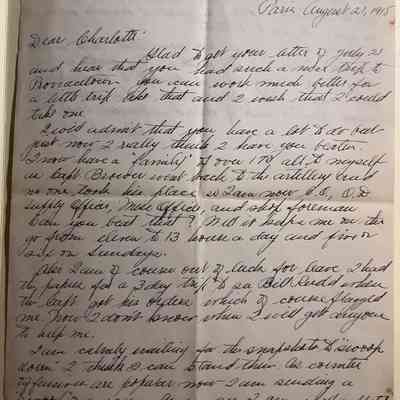 Paris August 21, 1918
Dear Charlotte:
Glad to get your letter of July 21
and hear that you had such a nice trip to
you can work much better for
a little trip like that and I wish that I could
take one.
I will admit that you have a lot to do but
just now I really think I have you beaten.
I now have a "family" of over 170 all to myself
as Capt went back to the artillery and
no one took his place so I am now C.O., Q.M
supply officer, Mess officer, and shop foreman
Can you beat that? Well it keeps me on the
go from eleven to 13 hours a day and five or
six on Sundays.
Also I am of course out of luck for leave. I had
the papers for a 3 day trip to see Bill when
the Capt got his orders which of course
me. Now I don't know when I will get anyone
to help me.
I am calmly waiting for the snapshots to "swoop
down" I think I can stand them. As counter
are popular now I am sending a